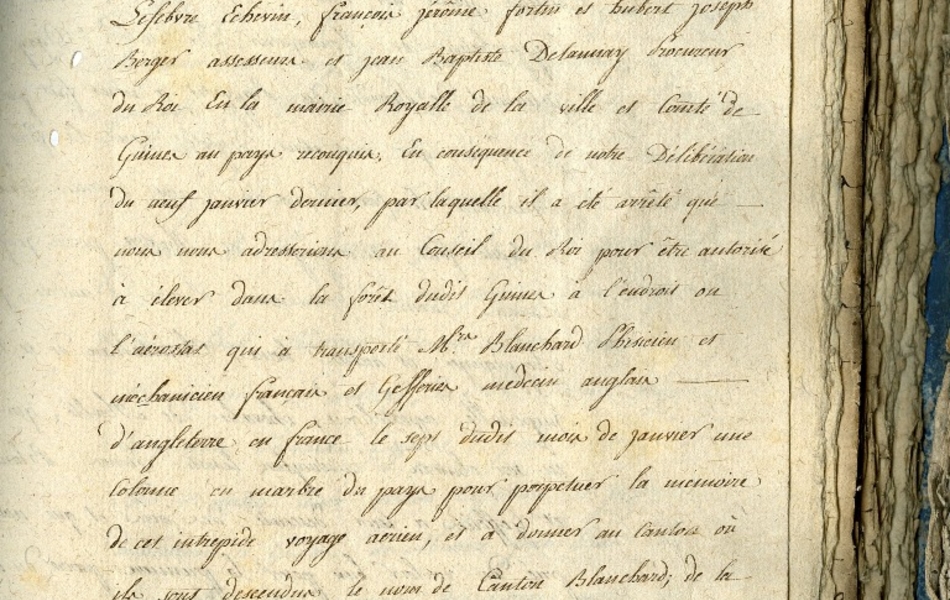 Lefebvre Echevin, françois jérôme fortin et hubert joseph
Berger assesseurs et jean Baptiste Delaunay Procureur
du Roi En la mairie Royalle de la ville et Comté de
Guines au pays reconquis, En conséquence de notre Délibération
du neuf janvier dernier, par laquelle il a été arrêté que —
nous nous adresserions au Conseil du Roi pour être autorisé
à élever dans la forêt dudit Guines à l'endroit ou
l'aérostat qui à transporté Mrs Blanchard Phisicien et
méchanicien français et Gefferies médecin anglais —
d'angleterre en france le sept dudit mois de janvier une
Colonne en marbre du pays pour perpetuer la mémoire
de cet intrepide voyage aérien, et à donner au Canton où
ils sont descendus le nom de Canton Blanchard; de la